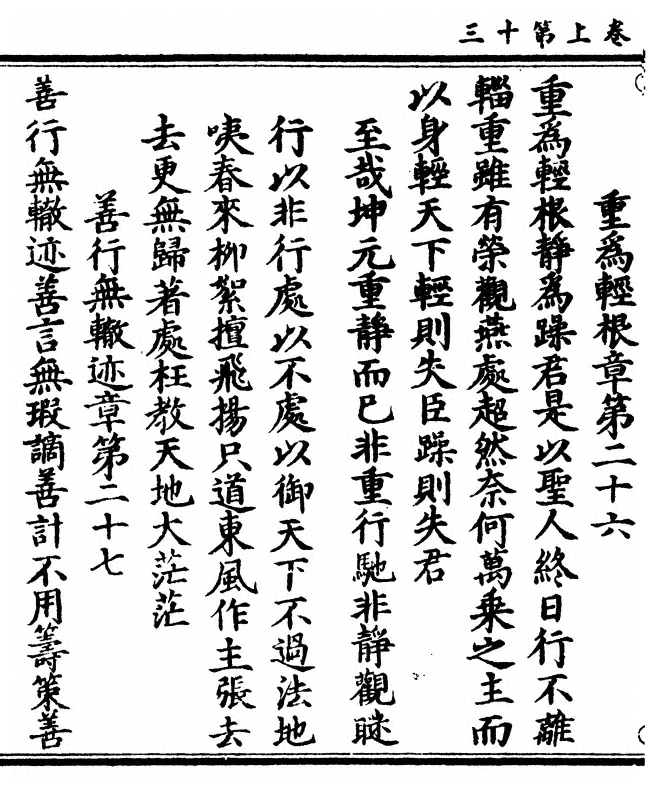 卷上第十三
重為輕根章第二十六
重為輕根靜為躁君是以聖人終日行不離
輜重雖有榮觀燕處超然柰何萬乗之主而
以身輕天下輕則失臣躁則失君
至哉坤元重靜而已非重行馳非靜觀瞇
行以非行處以不處以御天下不過法地
咦春來柳絮擅飛揚只道東風作主張去
去更無歸著處枉教天地大茫茫
善行無轍迹章第二十七
善行無轍迹善言無瑕謫善計不用籌策善